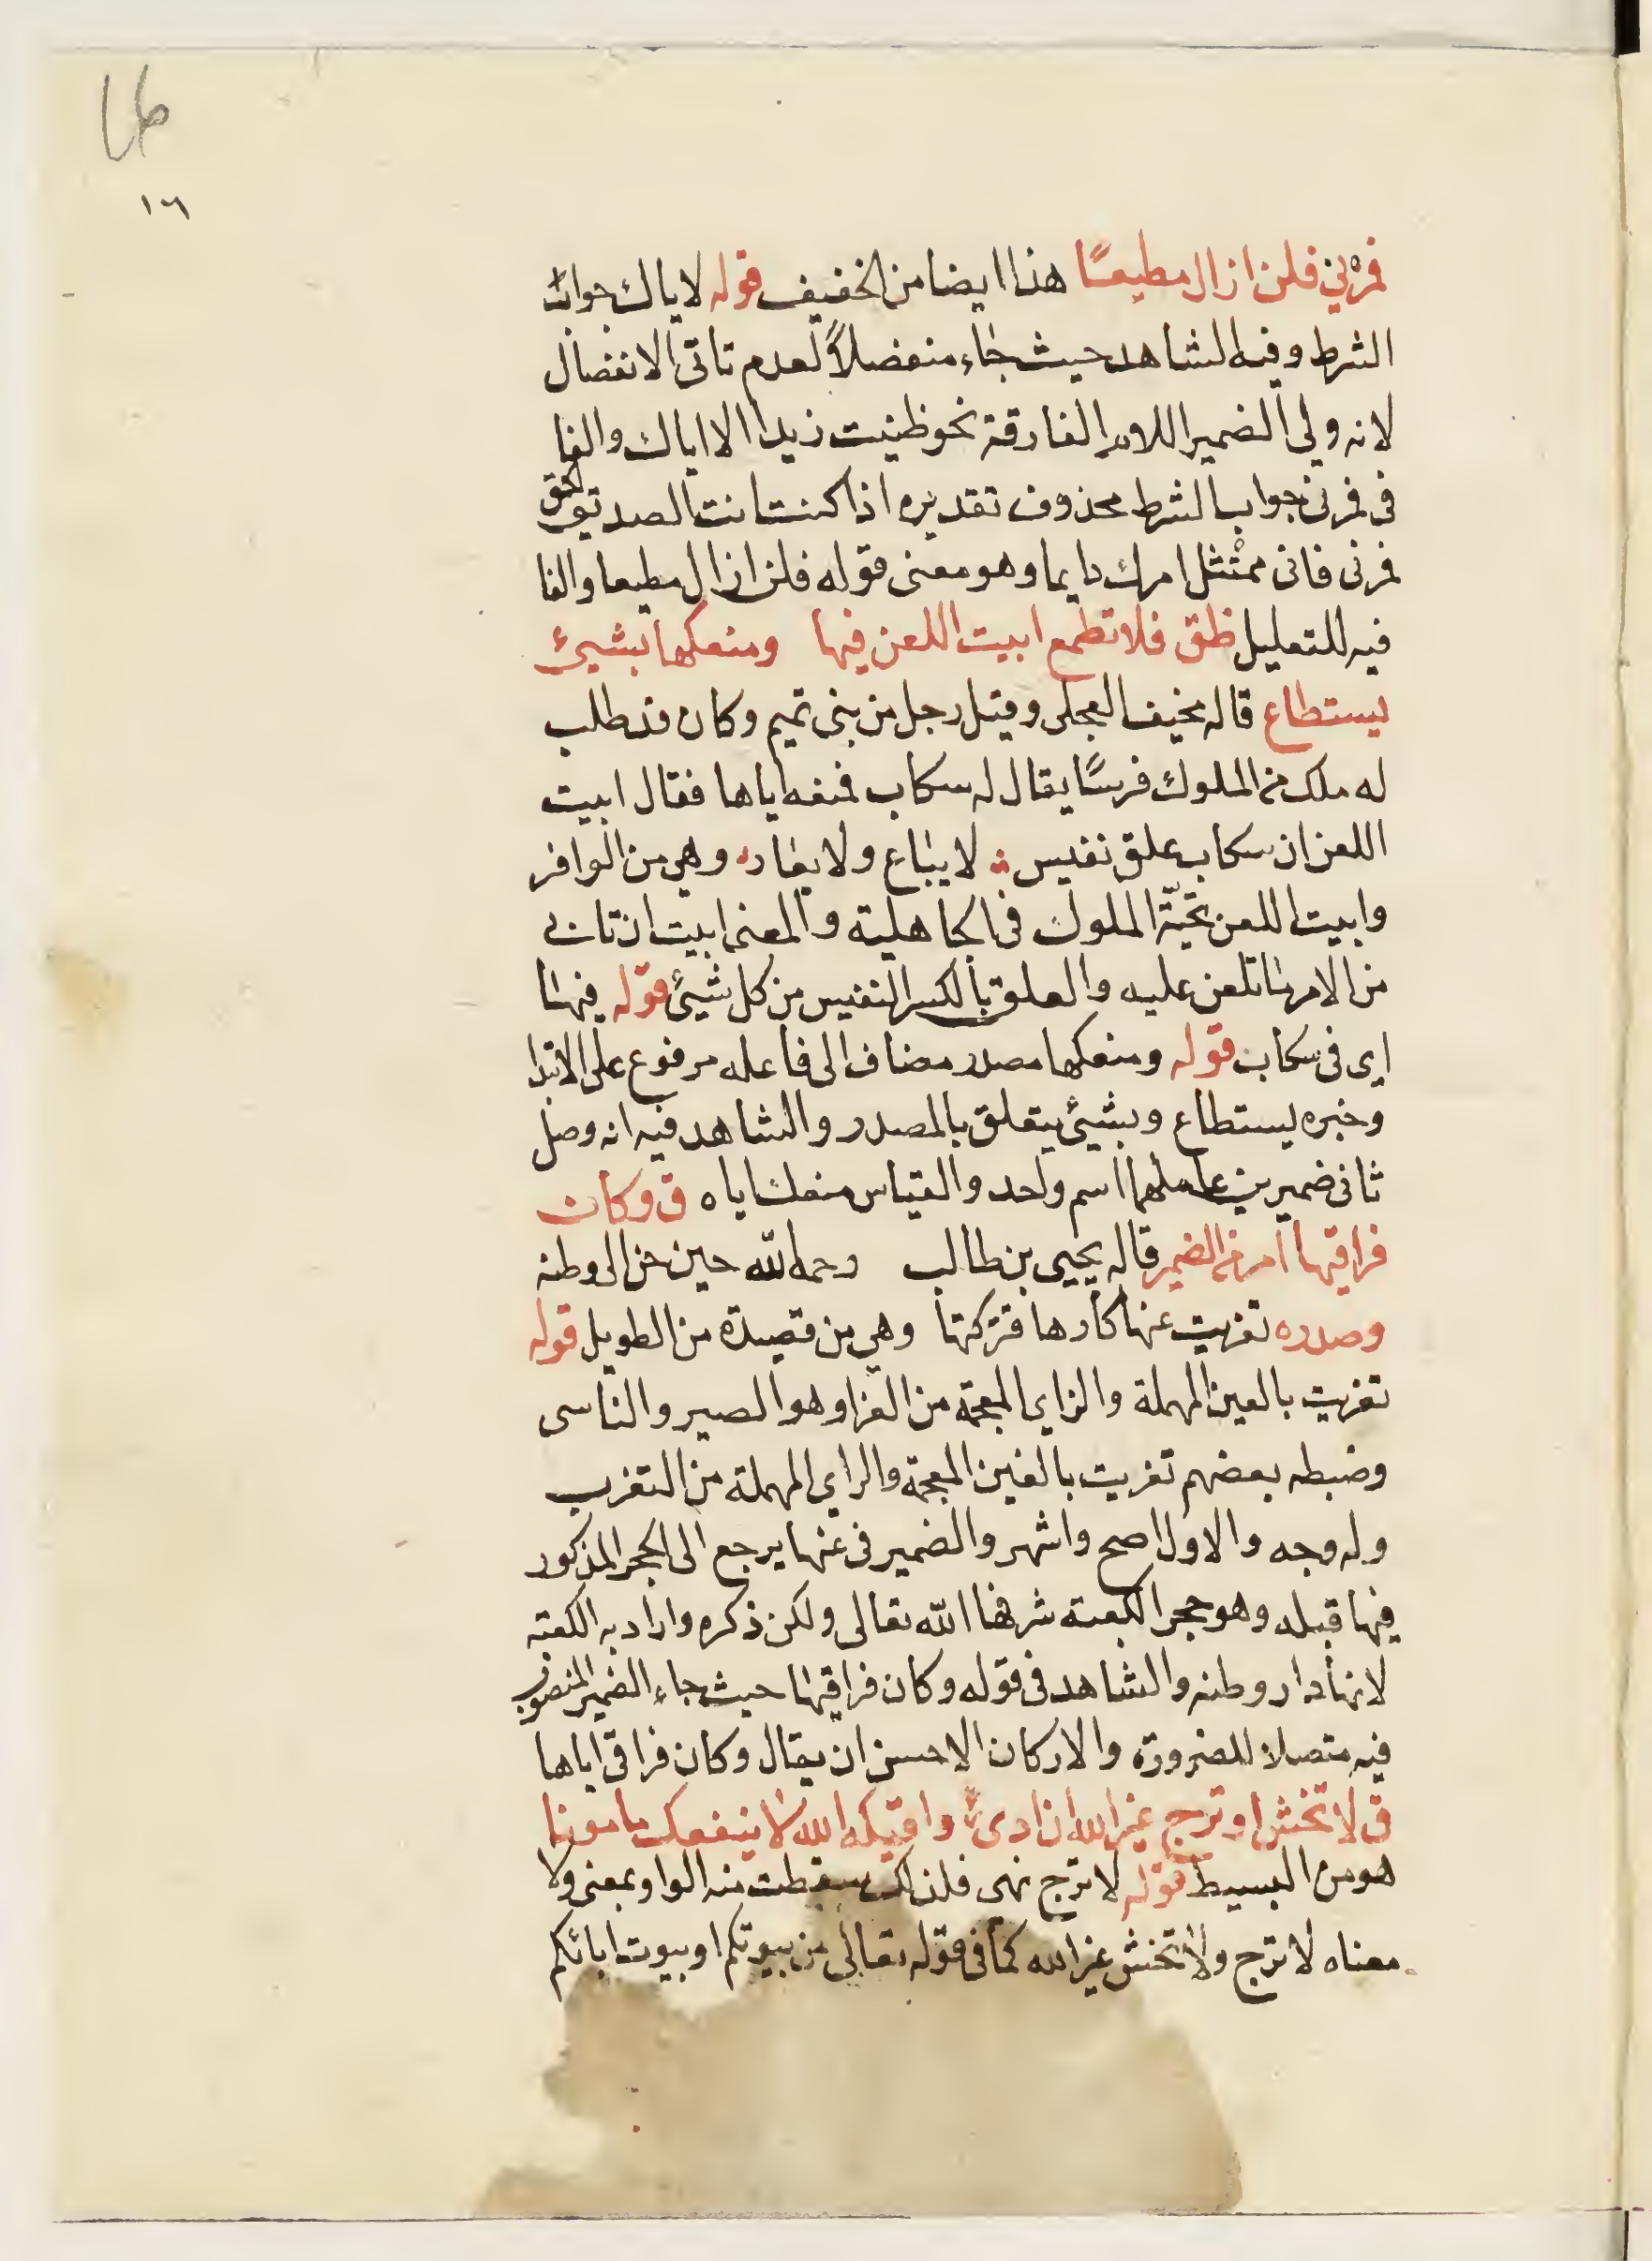 ١٦
فمرني فلن ازال مطيعًا هذا ايضا من الخفيف قوله لاياك جواب
الشرط وفيه الشاهد حيث جاء منفصلاً لعدم تاتى الانفصال
لانه ولى الضمير اللام الفارقة نحو ظنيت زيدا الا اياك والفا
فى فمرنى جواب الشرط محذوف تقديره اذا كنت انت الصديق الحق
فمرنى فانى ممتثل امرك دايما وهو معنى قوله فلن ازال مطيعا والفا
فيه للتعليل ظق فلا تطمع ابيت اللعن فيها ومنعكها بشيئ
يستطاع قاله مخيف العجلى وقيل رجل من بنى تميم وكان قد طلب
له ملك من الملوك فرسًا يقال له سكاب فمنعه اياها فقال ابيت
اللعن ان سكاب علق نفيس لا يباع ولا يعار وهى من الوافر
وابيت اللعن تحيّة الملوك فى الجاهلية والمعنى ابيت ان تاتى
من الامر ما تلعن عليه والعلق بالكسر النفيس من كل شيئ قوله فيها
اى فى سكاب قوله ومنعكها مصدر مضاف الى فاعله مرفوع على الابتدا
وخبره يستطاع وبشيئ يتعلق بالمصدر والشاهد فيه انه وصل
ثانى ضميرين عاملهما اسم واحد والقياس منعك اياه ق وكان
فراقيها امر من الضمير قاله يحيى بن طالب رحمه الله حين حن الى وطنه
وصدره تعزيت عنها كارها فتركتها وهى من قصيدة من الطويل قوله
تعزيت بالعين المهملة والزاى المعجمة من العزا وهو الصبر والتاسى
وضبطه بعضهم تغربت بالغين المعجمة والراى المهملة من التغرب
وله وجه والاول اصح واشهر والضمير فى عنها يرجع الى الحجر المذكور
فيها قبله وهو حجر الكعبة شرفها الله تعالى ولكن ذكره واراد به الكعبة
لانها دار وطنه والشاهد فى قوله وكان فراقيها حيث جاء الضمير المنصوب
فيه متصلا للضرورة والا ركان الاحسن ان يقال وكان فراقى اياها
ق لا تخش او ترج غير الله ان اذى واقيكه الله لا ينفعك مامونا
هو من البسيط قوله لا ترج نهى فلذلك سقطت منه الواو بمعنى ولا
معناه لا ترج ولا تخش غير الله كما فى قوله تعالى من بيوتكم او بيوت ابائكم